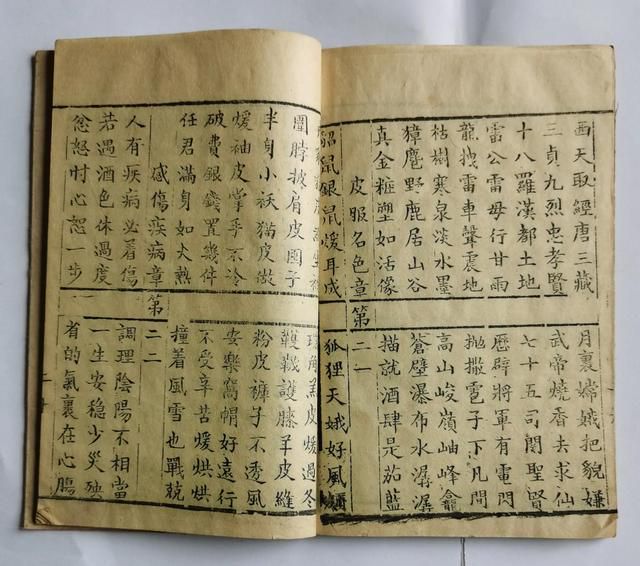 西天取經唐三藏 月裏嫦娥把貌嫌
三貞九烈忠孝賢 武帝燒香去求仙
十八羅漢都土地 七十五司閻聖賢
雷公雷母行甘雨 歷辟將軍有電閃
龍拽雷車聲震地 抛撒雹子下凡間
枯樹寒泉淡水墨 高山峻嶺岫峰龕
獐麅野鹿居山谷 蒼壁瀑布水潺潺
真金粧塑如活像 描就酒肆是茄藍
皮服名色章 第二一
貂鼠銀鼠煖耳成 狐狸天娥好風
角羔皮煖過冬
圍脖披肩皮圈子 鞾韈護膝羊皮縫
半身小袄猫皮做 粉皮褲子不透風
煖袖皮掌手不冷 安樂窩帽好遠行
破費銀錢置幾件 不受辛苦煖烘烘
任君滿身如火熱 撞着風雪也戰兢
感傷疾病章 第二二
人有疾病必着傷 調理陰陽不相當
若遇酒色休過度 一生安穩少災殃
忿怒忖心恕一步 省的氣裏在心腸